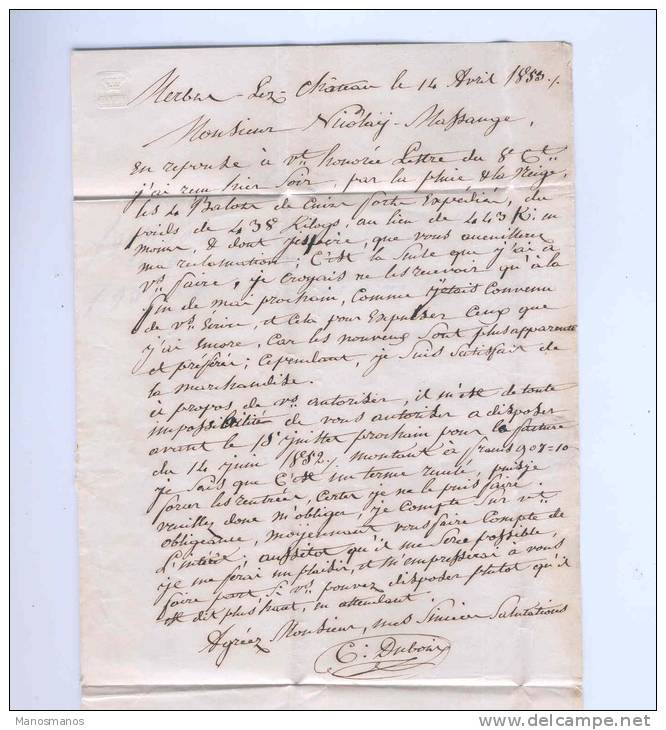 Merbes-Lez-Château le 14 Avril 1853.
Monsieur Nicolaÿ-Massange,
en reponse à vtre honorée Lettre du 8e Ct
j'ai reçu hier Soir, par la pluie & la Neige,
les 4 Balots de Cuirs forts Expédiés, du
poids de 438 Kilogs, au lieu de 443 K. en
moins, & dont j'espère, que vous accueillerez
ma reclamation; C'est la Suite que j'ai à
vs faire, je croyais ne les recevoir qu'à la
fin de mai prochain, comme j'étais convenu
de vs Ecrire, et Cela pour Expulser Ceux que
j'ai encore, Car les nouveaux sont plus apparents
et préférés; Cependant, je Suis Satisfait de
la marchandise.
à propos de vs autoriser, il m'est de toute
impossibilité de vous autoriser a disposer
avant le 15 Juillet prochain pour la facture
du 14 juin 1852, montant à francs 907-10
je Sais que C'est un terme reculé, puis je
forcer les rentrées, Certes je ne le puis faire.
veuillez donc m'obliger, je compte sur vtre
obligeance, moyennant vous faire Compte de
l'intérêt. aussitot qu'il me Sera possible,
je me ferai un plaisir, et m'empresserai à vous
faire part si vs pouvez disposer plutot qu'il
est dit plus haut, en attendant.
Agréez Monsieur, mes Sincères Salutations
C: Dubois
Manosmanos
delcampe.net